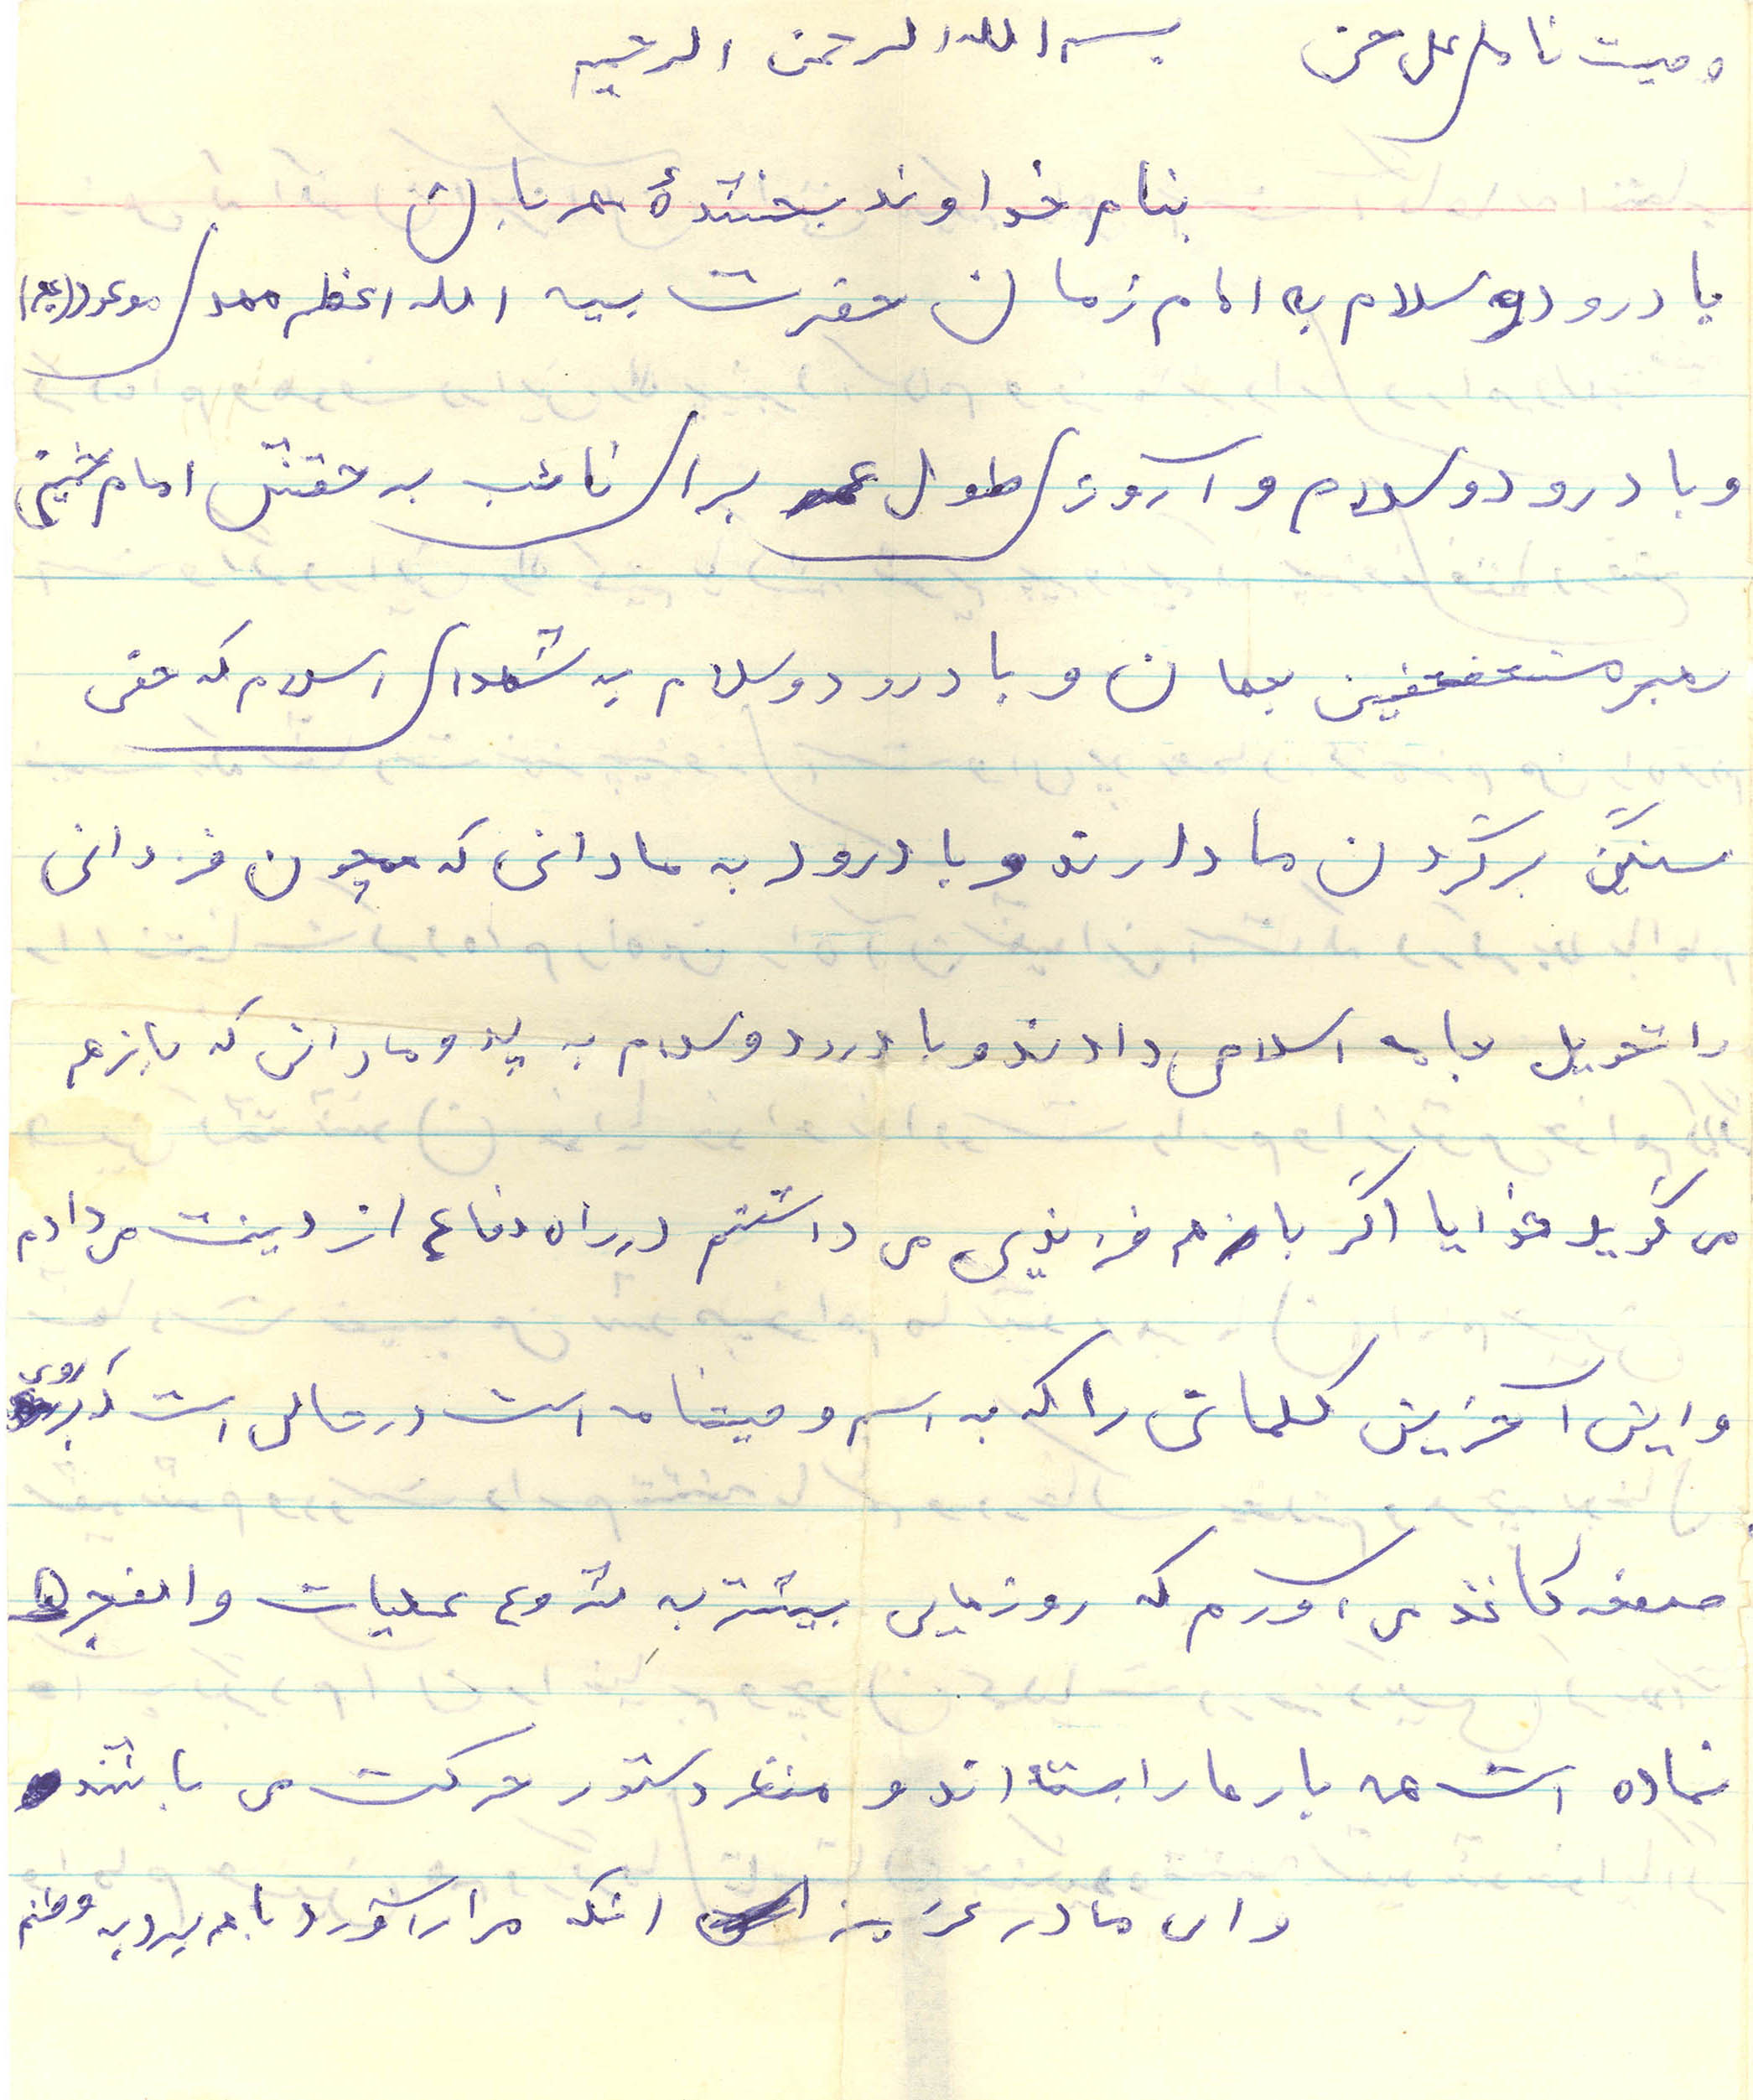 وصیت نامه علی حسن بسم الله الرحمن الرحیم
بنام خداوند بخشندهٔ مهربان
با درود و سلام به امام زمان حضرت بقیه الله اعظم مهدی موعود (عج)
و با درود و سلام و آروزی طول عمر برای نائب به حقش امام خمینی
رهبر مستضعفین جهان و با درود و سلام به شهدای اسلام که حقی
سنگین برگردن ما دارند و با درود به مادانی که چون فرزدانی
را تحویل جامعه اسلامی دادند و با درود و سلام به پدر و مادرانی که بازهم
می گوید خدایا اگر بازهم فرزندی می داشتم در راه دفاع از دینت می دادم
و این آخرین کلماتی را که به اسم وصیتنامه است در حالی است که بر روی
صفحه کاغذ می آورم که روزهایی بیشتر به شروع عملیات والفجر ۵
نمانده است همه بارها را بسته اند و منتظر دستور حرکت می باشند
و ای مادر عزیز اشکه مرا